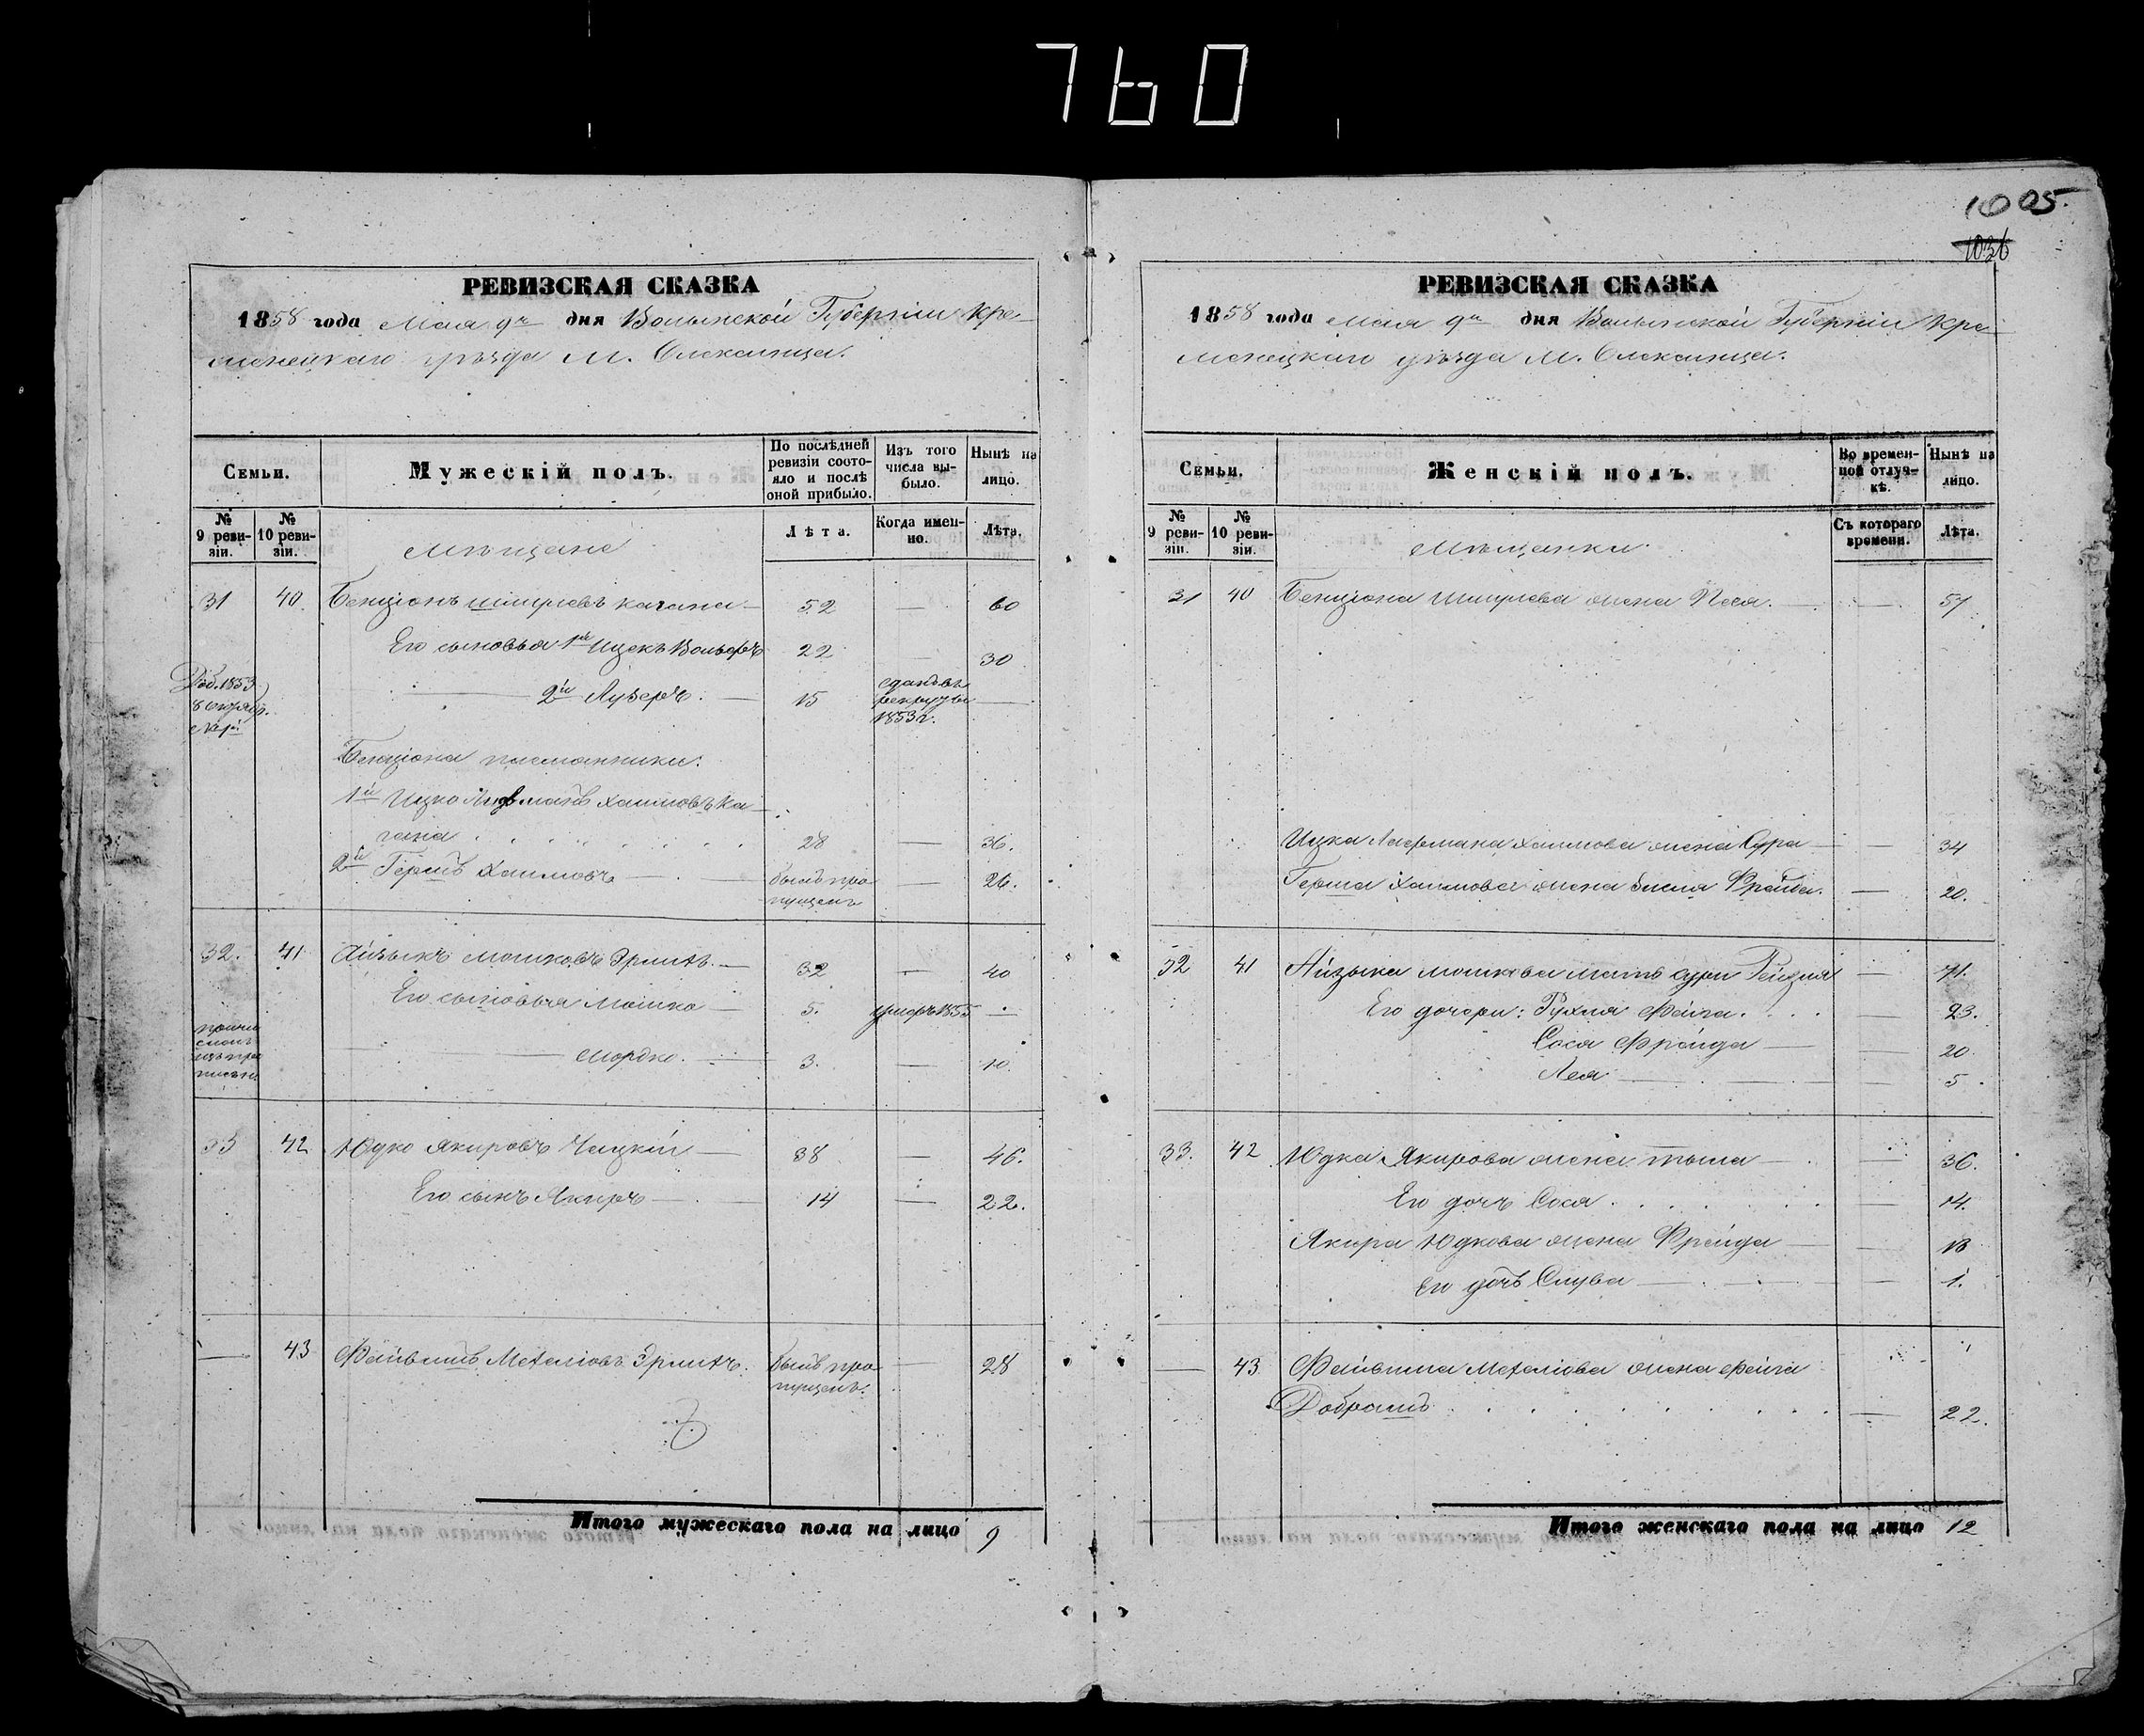 760
1005.
1036
РЕВИЗСКАЯ СКАЗКА
1858 года Мая 9го дня Волынской Губерніи Кре-
менецкаго уѣзда М. Олексинца.
Семьи.
Мужескій полъ.
По послѣдней ревизіи состояло и послѣ оной прибыло.
Изъ того числа выбыло.
Нынѣ на лицо.
№ 9 ревизіи.
№ 10 ревизіи.
Мѣщане
Лѣта.
Когда именно.
Лѣта.
31 40. Бенціонъ Шмулевъ Кагана — 52 — 60
Его сыновья 1й Ицекъ Вольфъ 22 — 30
2й Лузеръ. — 15 сданъ въ рекруты 1853 г. —
Бенціона племянники:
1й Ицко Либманъ Хаимовъ Ка-
гана 28 — 36.
2й Гершъ Хаимовъ — былъ пропущенъ — 26.
32. 41 Айзыкъ Мошковъ Эрлихъ. — 32 — 40
Его сыновья Мошко — 5. умеръ 1855 —
Мордко. — 3. — 10.
33 42 Юдко Якировъ Чацкій — 38 — 46.
Его сынъ Якиръ — 14 — 22.
— 43 Файвишъ Мехелiовъ Эрлихъ. былъ пропущенъ. — 28
Итого мужескаго пола на лицо 9
РЕВИЗСКАЯ СКАЗКА
1858 года Мая 9го дня Волынской Губерніи Кре
менецкаго уѣзда М. Олексинца.
Семьи.
Женскій полъ.
Во временной отлучкѣ.
Нынѣ на лицо.
№ 9 ревизіи.
№ 10 ревизіи.
Мѣщанки.
Съ котораго времени.
Лѣта.
31 40 Бенціона Шмулева жена Песя. — 57
Ицка Хаимова жена Сура — 34
Герша Хаимова жена Фрейда. — 20.
32 41 Айзыка Мошкова мать — 71.
Его дочери: Рухля Фейга. — 23.
Сося Фрейда — 20
Лея — 5.
33. 42 Юдка Якирова жена — 36.
Его дочъ Сося — 14.
Якира Юдкова жена Фрейда — 18
Его дочъ Слува — 1.
— 43 Файвиша Мехелiова жена Фейга
Добрашъ — 22.
Итого женскаго пола на лицо 12